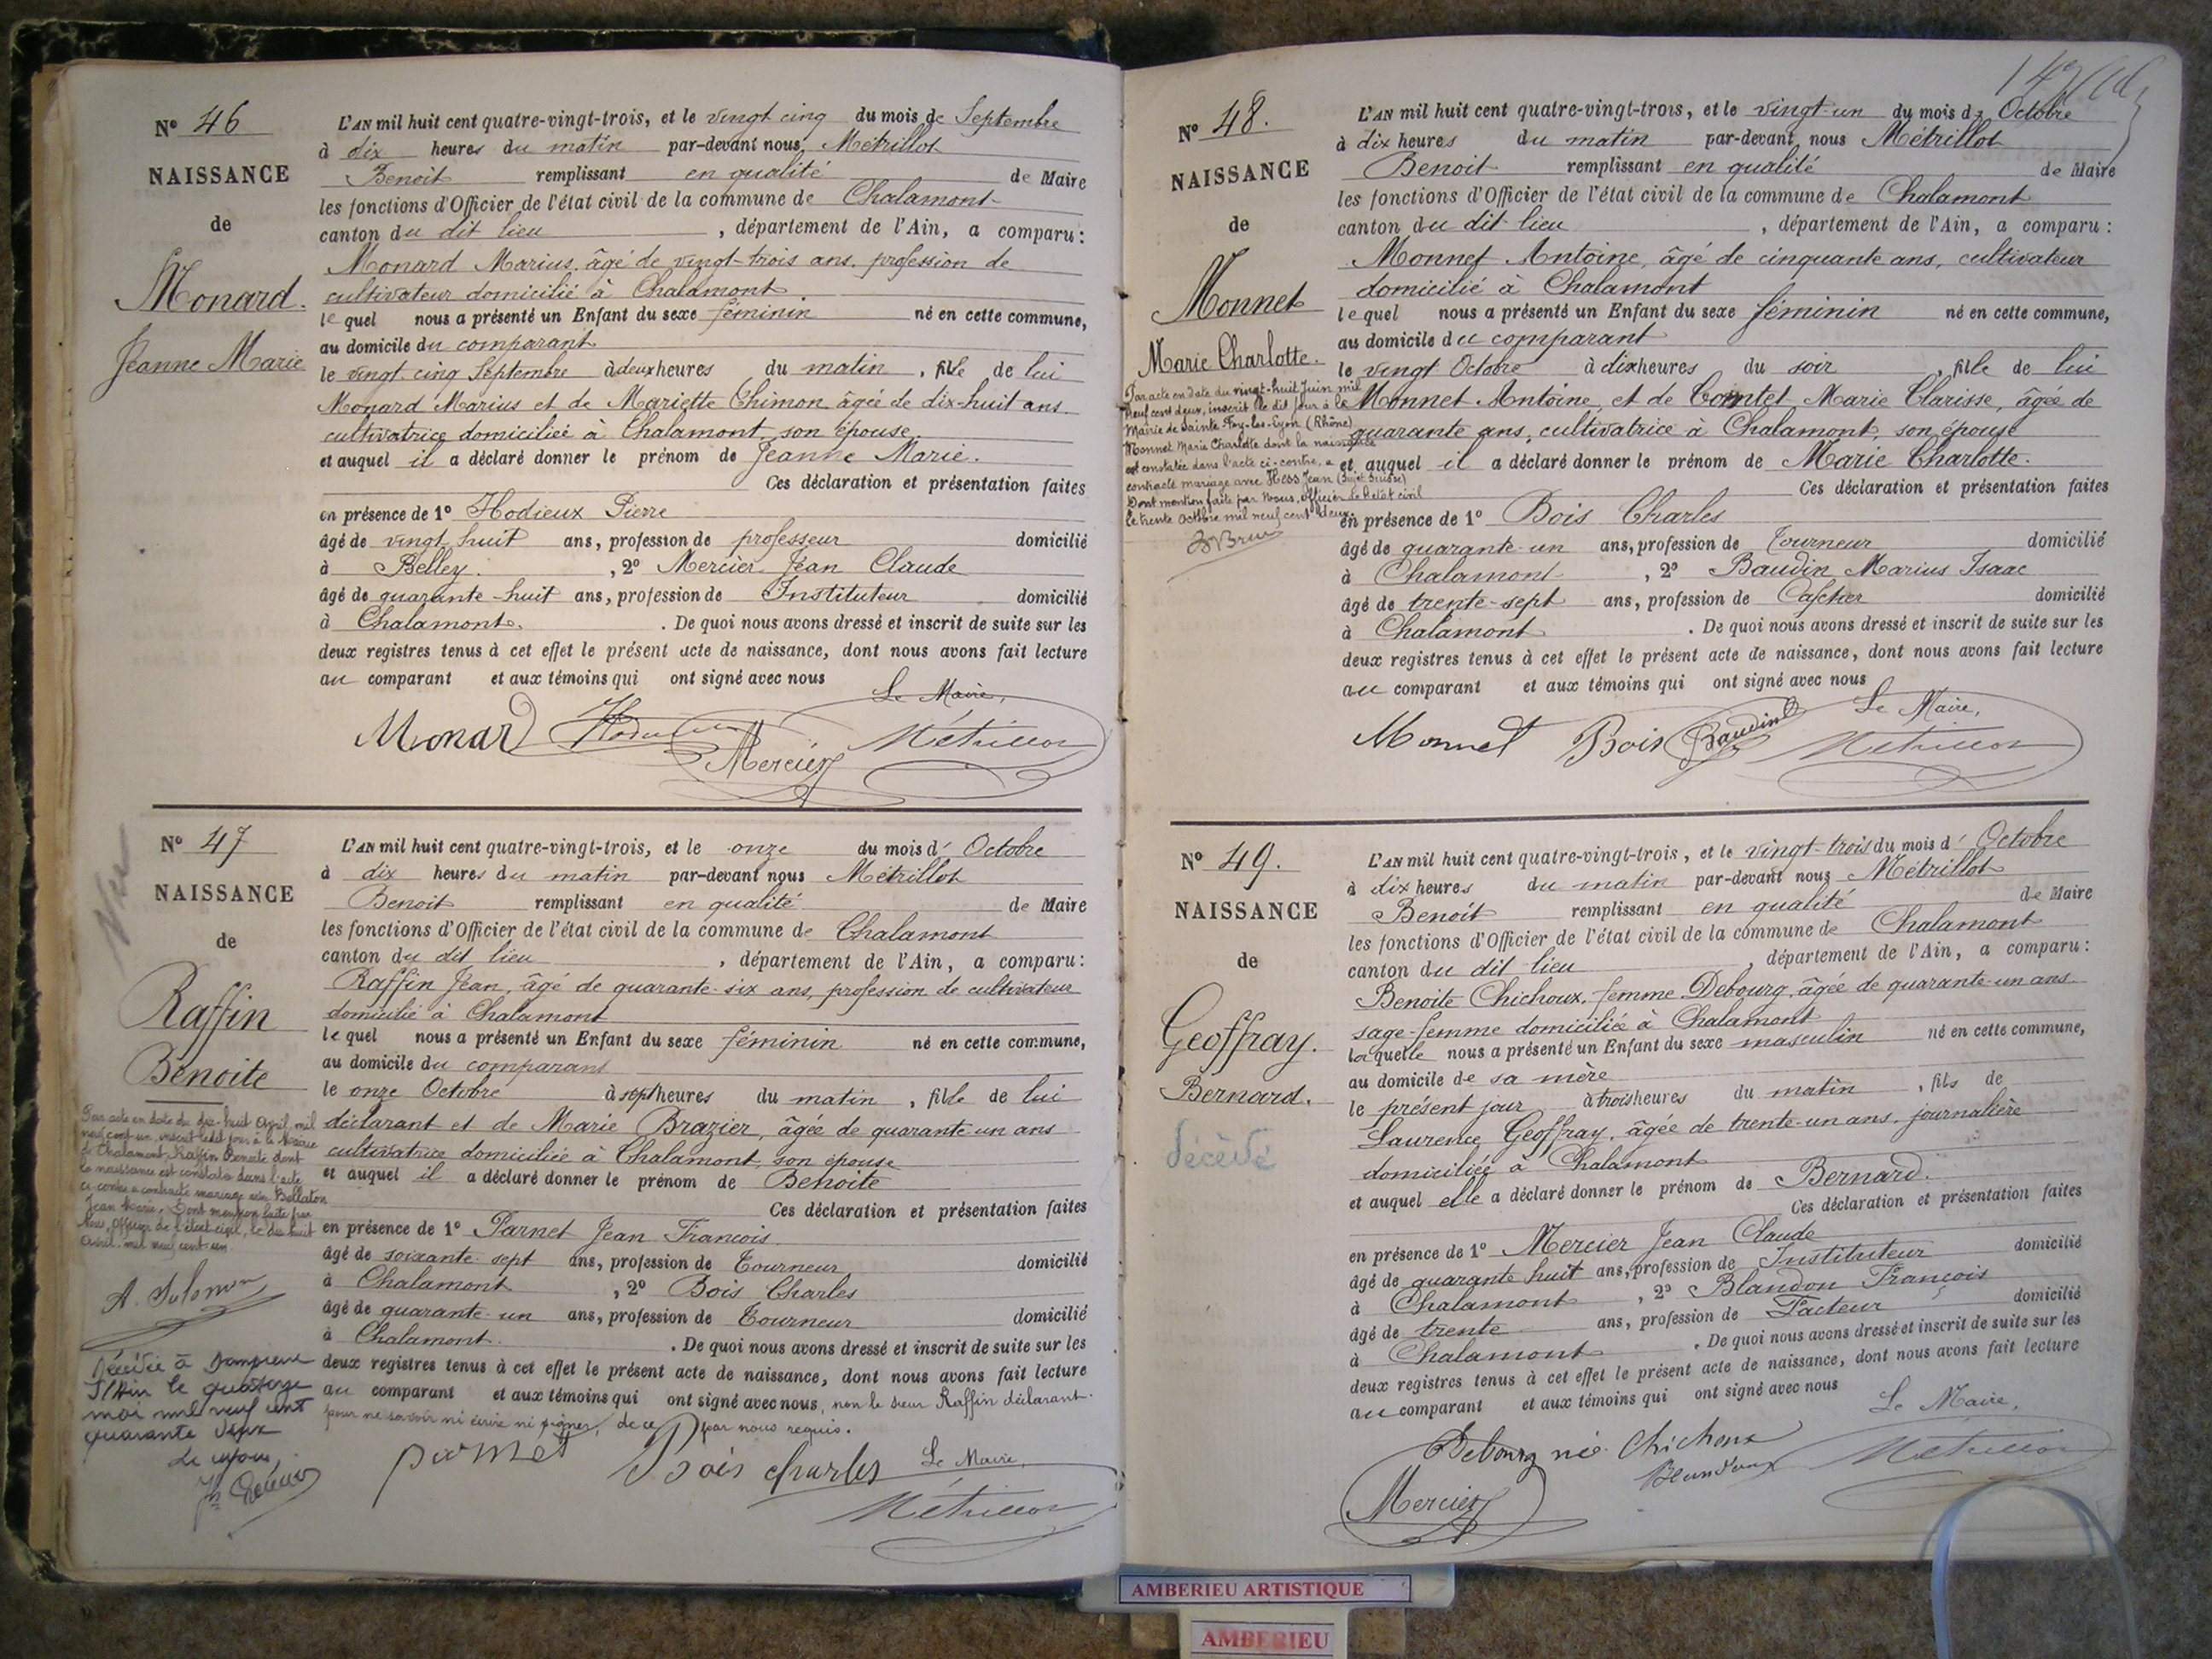 Nº 46
NAISSANCE
de
Monard.
Jeanne Marie
L'AN mil huit cent quatre-vingt-trois, et le vingt cinq du mois de Septembre
à dix heures du matin par-devant nous Métrillot
Benoit remplissant en qualité de Maire
les fonctions d'Officier de l'état civil de la commune de Chalamont
canton du dit lieu , département de l'Ain, a comparu :
Monard Marius, âgé de vingt-trois ans, profession de
cultivateur domicilié à Chalamont.
lequel nous a présenté un Enfant du sexe féminin né en cette commune,
au domicile du comparant
le vingt cinq Septembre à deux heures du matin , fille de lui
Monard Marius et de Mariette Chimon âgée de dix-huit ans
cultivatrice domiciliée à Chalamont, son épouse
et auquel il a déclaré donner le prénom de Jeanne Marie.
Ces déclaration et présentation faites
en présence de 1º Hodieux Pierre
âgé de vingt huit ans, profession de professeur domicilié
à Belley. , 2º Mercier Jean Claude
âgé de quarante-huit ans, profession de Instituteur domicilié
à Chalamont. . De quoi nous avons dressé et inscrit de suite sur les
deux registres tenus à cet effet le présent acte de naissance, dont nous avons fait lecture
au comparant et aux témoins qui ont signé avec nous
Le Maire,
Monard Mercier Métrillot
Nº 47
NAISSANCE
de
Raffin
Benoite
Par acte en date du dix-huit Avril mil
neuf cent un, inscrit ledit jour à la Mairie
de Chalamont, Raffin Benoite dont
la naissance est constatée dans l'acte
ci-contre a contracté mariage avec Bollaton
Jean Marie. Dont mention faite par
Nous, Officier de l'état civil, le dix huit
Avril mil neuf cent un
Décédée à
l'Ain le quatorze
mai mil neuf cent
quarante deux
L'AN mil huit cent quatre-vingt-trois, et le onze du mois d' Octobre
à dix heures du matin par-devant nous Métrillot
Benoit remplissant en qualité de Maire
les fonctions d'Officier de l'état civil de la commune de Chalamont
canton du dit lieu , département de l'Ain, a comparu :
Raffin Jean, âgé de quarante-six ans, profession de cultivateur
domicilié à Chalamont
lequel nous a présenté un Enfant du sexe féminin né en cette commune,
au domicile du comparant
le onze Octobre à sept heures du matin , fille de lui
déclarant et de Marie Brazier, âgée de quarante-un ans
cultivatrice domiciliée à Chalamont, son épouse
et auquel il a déclaré donner le prénom de Benoite
Ces déclaration et présentation faites
en présence de 1º Parnet Jean François
âgé de soixante-sept ans, profession de Tourneur domicilié
à Chalamont , 2º Bois Charles
âgé de quarante-un ans, profession de Tourneur domicilié
à Chalamont. . De quoi nous avons dressé et inscrit de suite sur les
deux registres tenus à cet effet le présent acte de naissance, dont nous avons fait lecture
au comparant et aux témoins qui ont signé avec nous, non le sieur Raffin déclarant
pour ne savoir ni écrire ni signer, de ce par nous requis.
parnet Bois charles Le Maire,
Métrillot
Nº 48.
NAISSANCE
de
Monnet
Marie Charlotte.
Par acte en date du vingt-huit Juin mil
neuf cent deux, inscrit le dit jour à la
Mairie de Sainte Foy-les-Lyon (Rhône)
Monnet Marie Charlotte dont la naissance
est constatée dans l'acte ci-contre, a
contracté mariage avec Hess Jean (Sujet Suisse)
Dont mention faite par Nous, Officier de l'état civil
le trente Octobre mil neuf cent deux.
L'AN mil huit cent quatre-vingt-trois, et le vingt-un du mois d' Octobre
à dix heures du matin par-devant nous Métrillot
Benoit remplissant en qualité de Maire
les fonctions d'Officier de l'état civil de la commune de Chalamont
canton du dit lieu , département de l'Ain, a comparu :
Monnet Antoine, âgé de cinquante ans, cultivateur
domicilié à Chalamont
lequel nous a présenté un Enfant du sexe féminin né en cette commune,
au domicile du comparant
le vingt Octobre à dix heures du soir , fille de lui
Monnet Antoine, et de Comtet Marie Clarisse, âgée de
quarante ans, cultivatrice à Chalamont, son épouse
et auquel il a déclaré donner le prénom de Marie Charlotte.
Ces déclaration et présentation faites
en présence de 1º Bois Charles
âgé de quarante-un ans, profession de Tourneur domicilié
à Chalamont , 2º Baudin Marius Isaac
âgé de trente-sept ans, profession de domicilié
à Chalamont . De quoi nous avons dressé et inscrit de suite sur les
deux registres tenus à cet effet le présent acte de naissance, dont nous avons fait lecture
au comparant et aux témoins qui ont signé avec nous
Le Maire,
Monnet Bois Baudin Métrillot
Nº 49.
NAISSANCE
de
Geoffray.
Bernard.
décédé
L'AN mil huit cent quatre-vingt-trois, et le vingt-trois du mois d' Octobre
à dix heures du matin par-devant nous Métrillot
Benoit remplissant en qualité de Maire
les fonctions d'Officier de l'état civil de la commune de Chalamont
canton du dit lieu , département de l'Ain, a comparu :
Benoite Chichoux, femme Debourg, âgée de quarante-un ans
sage-femme domiciliée à Chalamont
laquelle nous a présenté un Enfant du sexe masculin né en cette commune,
au domicile de sa mère
le présent jour à trois heures du matin , fils de
Laurence Geoffray, âgée de trente-un ans, journalière
domiciliée à Chalamont
et auquel elle a déclaré donner le prénom de Bernard.
Ces déclaration et présentation faites
en présence de 1º Mercier Jean Claude
âgé de quarante huit ans, profession de Instituteur domicilié
à Chalamont , 2º Blandon François
âgé de trente ans, profession de Facteur domicilié
à Chalamont . De quoi nous avons dressé et inscrit de suite sur les
deux registres tenus à cet effet le présent acte de naissance, dont nous avons fait lecture
au comparant et aux témoins qui ont signé avec nous
Le Maire,
Debourg née Chichoux
Mercier Métrillot
AMBERIEU ARTISTIQUE
AMBERIEU